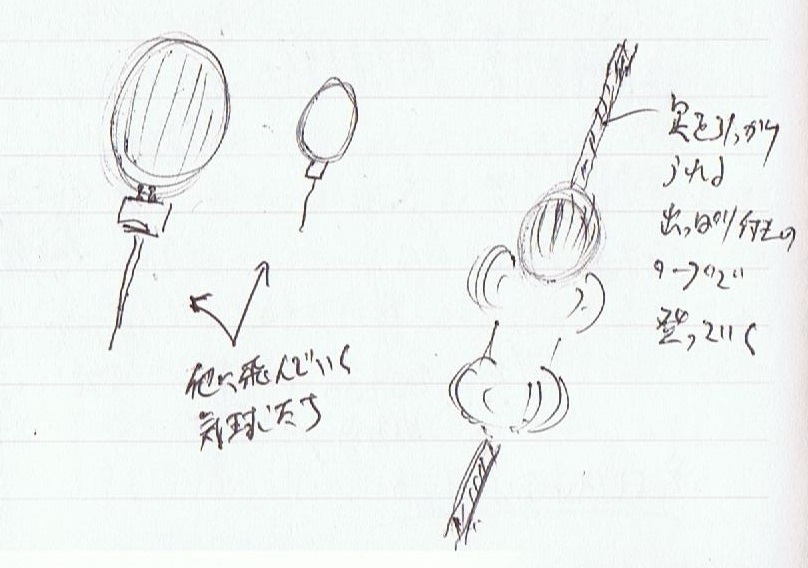 他に飛んでいく
気球たち
を引っかけ
られる
出っぱり付きの
ロープで
登っていく